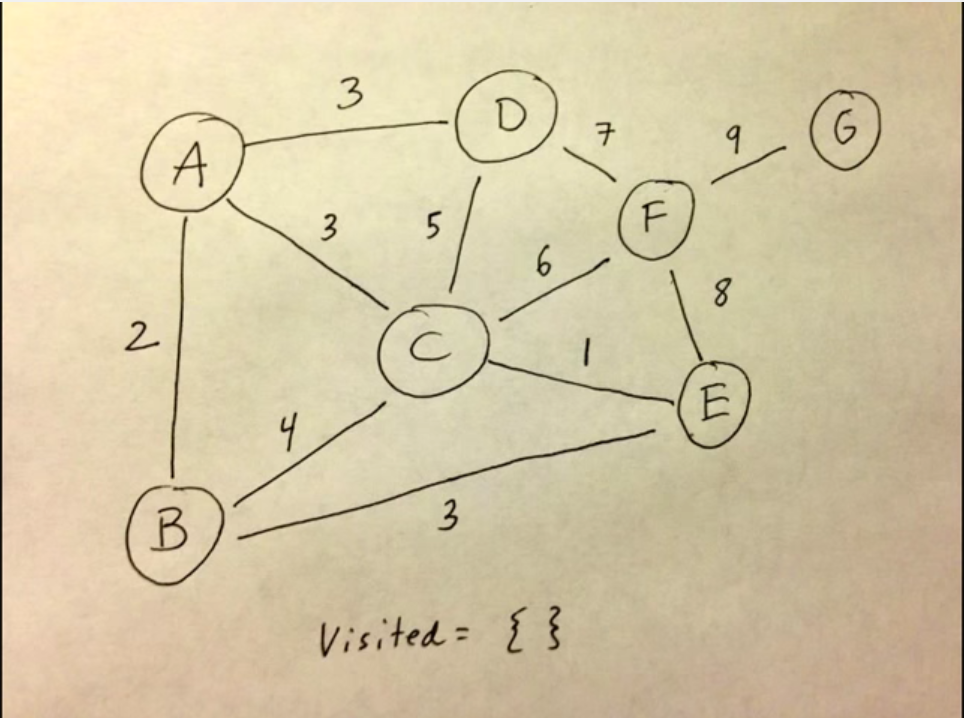 3
D
7
9
G
A
3
5
F
6
8
2
C
1
E
4
B
3
Visited = { }